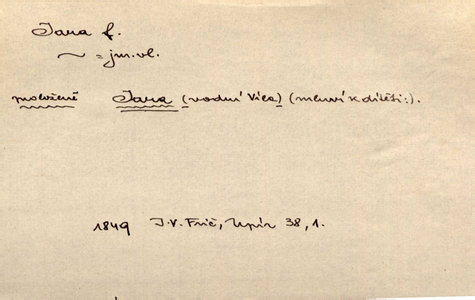 Jara f.
~ = jm. vl.
Jara (vodní Víla) (mluví k dítěti:).
1849 J. V. Frič, Upír 38, 1.